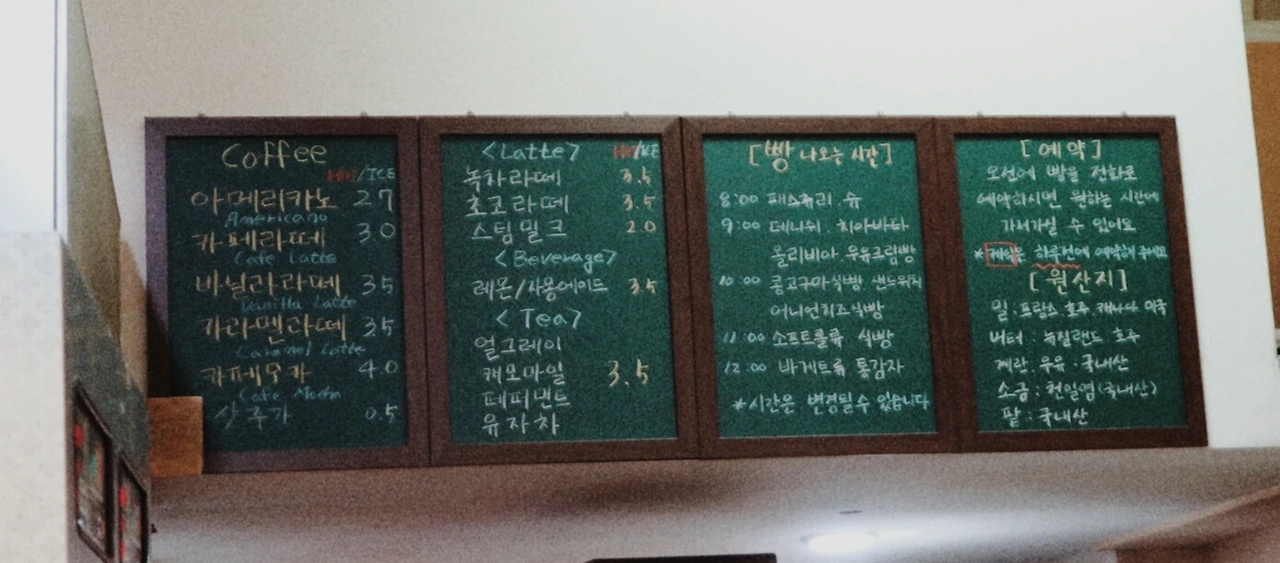 Coffee
HOT/ICE
아메리카노 2.7
Americano
카페라떼 3.0
Cafe Latte
바닐라라떼 3.5
Vanilla Latte
카라멜라떼 3.5
Caramel Latte
카페모카 4.0
Cafe Mocha
샷추가 0.5
<Latte> HOT/ICE
녹차라떼 3.5
초코라떼 3.5
스팀밀크 2.0
<Beverage>
레몬/자몽에이드 3.5
<Tea>
얼그레이
캐모마일 3.5
페퍼민트
유자차
[빵 나오는 시간]
8:00 패스츄리 슈
9:00 데니쉬. 치아바타
올리비아 우유크림빵
10:00 콩고구마식빵 샌드위치
어니언치즈식빵
11:00 소프트롤류 식빵
12:00 바게트류 통감자
*시간은 변경될수 있습니다
[예약]
오전에 빵을 전화로
예약하시면 원하는 시간에
가져가실 수 있어요
*케익은 하루전에 예약해 주세요
[원산지]
밀:프랑스 호주 캐나다 미국
버터: 뉴질랜드 호주
계란.우유:국내산
소금:천일염(국내산)
팥:국내산